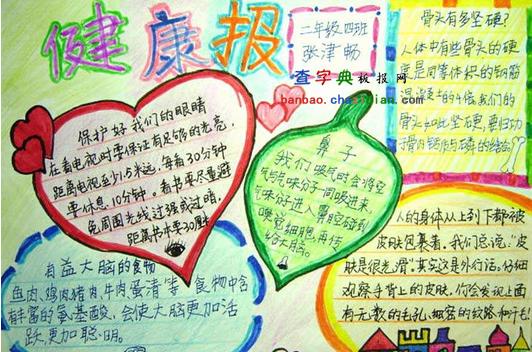 健康报
二年级四班
张津畅
查字典板报网
banbao.chazidian.com
骨头有多坚硬?
人体中有些骨头的硬
度是同等体积的钢筋
混凝土的4倍,我们的
骨头如此坚硬,要归功
于骨内钙与磷的结合
保护好我们的眼睛
在看电视时要保证有足够的光亮,
距离电视至少1.5米远,每看30分钟
要休息,10分钟。看书要尽量避
免周围光线过强或过暗,
距离书本要30厘米
鼻子
我们吸气时会将空
气与气味分子一同吸进来,
气味分子进入鼻腔碰到
嗅觉细胞,再传
给大脑。
有益大脑的食物
鱼肉、鸡肉猪肉、牛肉、蛋清等食物中含
有丰富的氨基酸,会使大脑更加活
跃,更加聪明。
人的身体从上到下都被
皮肤包裹着。我们总说:“皮
肤是很光滑”其实这是外行话。仔细
观察手背上的皮肤,你会发现上面
有无数的毛孔、细密的纹路和汗毛